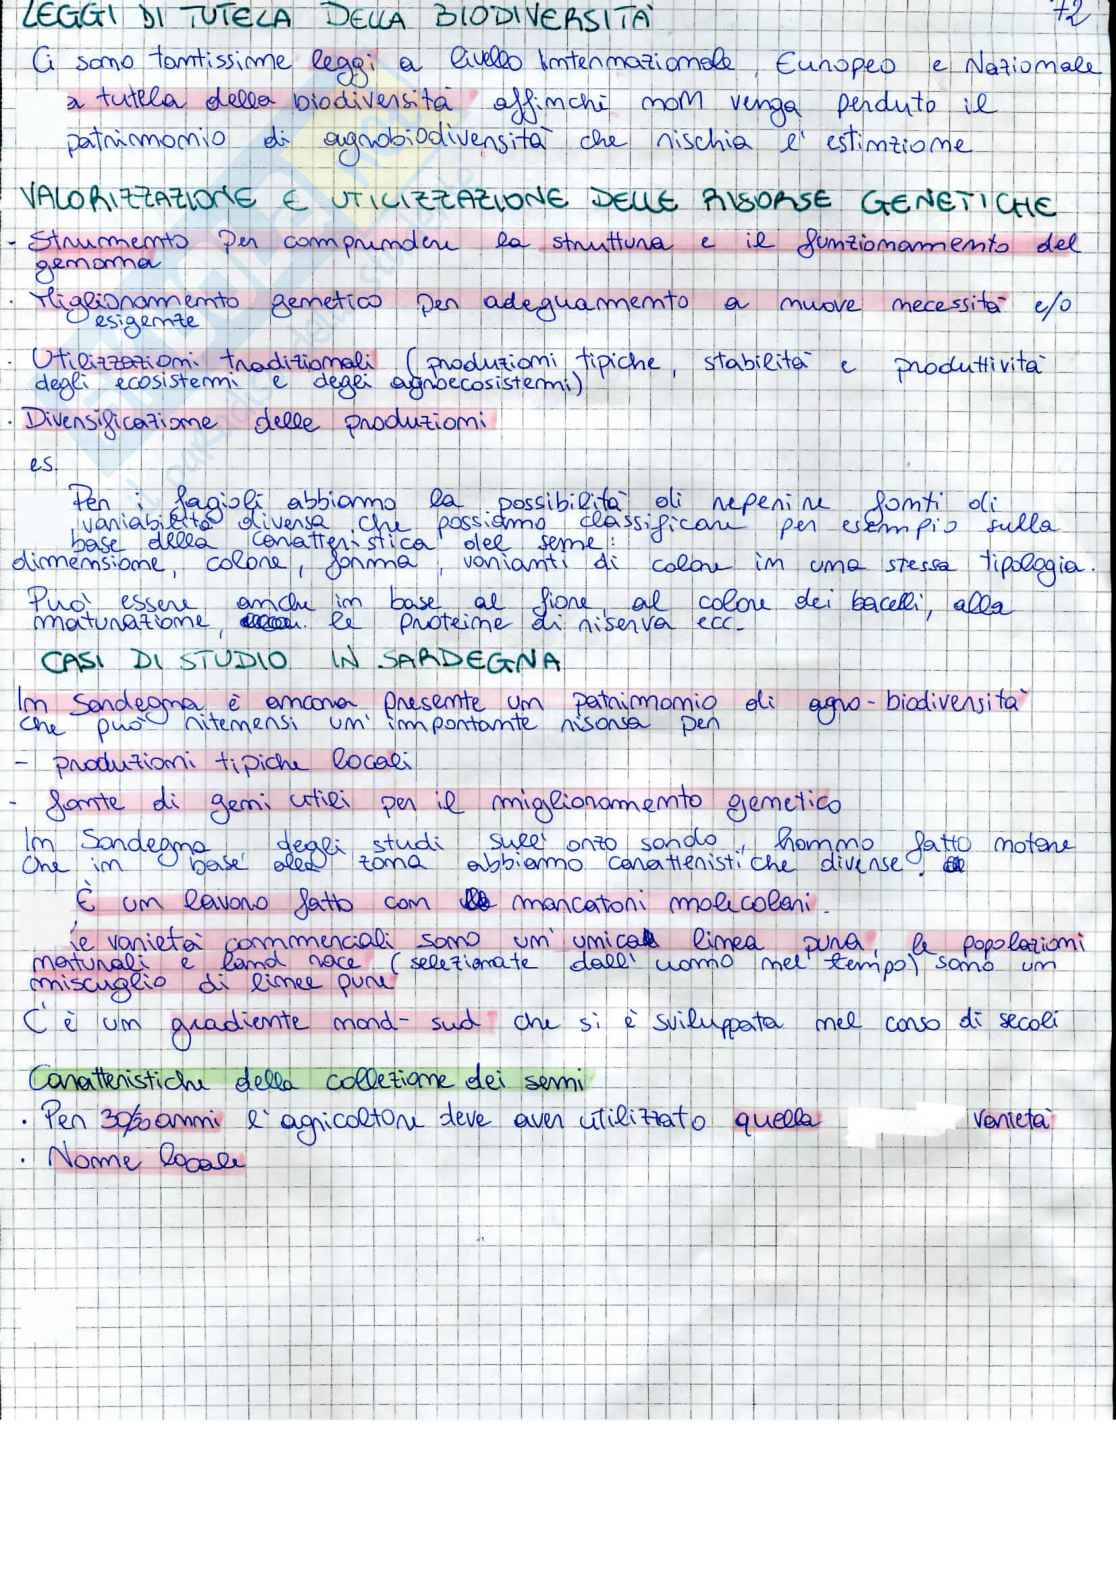 LEGGI DI TUTELA DELLA BIODIVERSITÀ 72
Ci sono tantissime leggi a livello Internazionale, Europeo e Nazionale
a tutela della biodiversità affinchè non venga perduto il
patrimonio di agrobiodiversità che rischia l'estinzione
VALORIZZAZIONE E UTILIZZAZIONE DELLE RISORSE GENETICHE
- Strumento per comprendere la struttura e il funzionamento del
genoma
· Miglioramento genetico per adeguamento a nuove necessità e/o
esigenze
· Utilizzazioni tradizionali (produzioni tipiche, stabilità e produttività
degli ecosistemi e degli agroecosistemi)
· Diversificazione delle produzioni
es.
Per i fagioli abbiamo la possibilità di reperire fonti di
variabilità diversa che possiamo classificare per esempio sulla
base della caratteristica del seme:
dimensione, colore, forma, varianti di colore in una stessa tipologia.
Può essere anche in base al fiore, al colore dei bacelli, alla
maturazione, le proteine di riserva ecc.
CASI DI STUDIO IN SARDEGNA
In Sardegna è ancora presente un patrimonio di agro-biodiversità
che può ritenersi un'importante risorsa per
- produzioni tipiche locali
- fonte di geni utili per il miglioramento genetico
In Sardegna degli studi sull'orzo sardo, hanno fatto notare
che in base alla zona abbiamo caratteristiche diverse.
È un lavoro fatto con marcatori molecolari.
le varietà commerciali sono un'unica linea pura, le popolazioni
naturali e land race (selezionate dall'uomo nel tempo) sono un
miscuglio di linee pure
C'è un gradiente nord-sud che si è sviluppata nel corso di secoli
Caratteristiche della collezione dei semi
· Per 30/50 anni l'agricoltore deve aver utilizzato quella varietà
· Nome locale